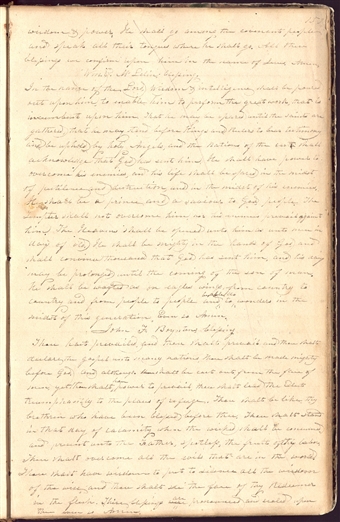 wisdom & power, He shall go among the covenant people
and speak all their tongues where he shall go. All these
blessings we confirm upon him in the name of Jesus Amen.
blessing.
In the name of the Lord, wisdom & intelligence shall be poured
out upon him, to enable him to perform the great work that is
incumbent upon him. That he may be spared until the saints are
gathered, that he may stand before kings and rulers to bear testimony
and be upheld by holy Angels, and the nations of the earth shall
acknowledge that God has sent him. He shall have power to
overcome his enemies, and his life shall be spared in the midst
of pestilence and destruction and in the midst of his enemies.
He shall be a prince and a saviour to God's people. The
tempter shall not overcome him, nor his enemies prevail against
him. The Heavens shall be opened unto him as unto men in
days of old. He shall be mighty in the hands of God and
shall convince thousands that God has sent him, and his days
may be prolonged until the coming of the son of man.
He shall be wafted as on eagles wings from country to
country and from people to people and be able to do wonders in the
midst of this generation, Even so Amen.
John F. Boyntons blessing
Thou hast prevailed, and thou shalt prevail and thou shalt
declare the gospel unto many nations thou shalt be made mighty
before God, and although thou shalt be cast out from the face of
men, yet thou shalt have power to prevail, thou shalt lead the Elect
triumphantly to the places of refuge. Thou shalt be like thy
brethren who have been blessed before thee. Thou shalt stand
in that day of calamity when the wicked shall be consumed,
and present unto the Father, spotless, the fruits of thy labor.
Thou shalt overcome all the evils that are in the world.
Thou shalt have wisdom to put to silence all the wisdom
of the wise, and thou shalt see the face of thy Redeemer
in the flesh. These blessings are pronounced and sealed upon
thee even so Amen.